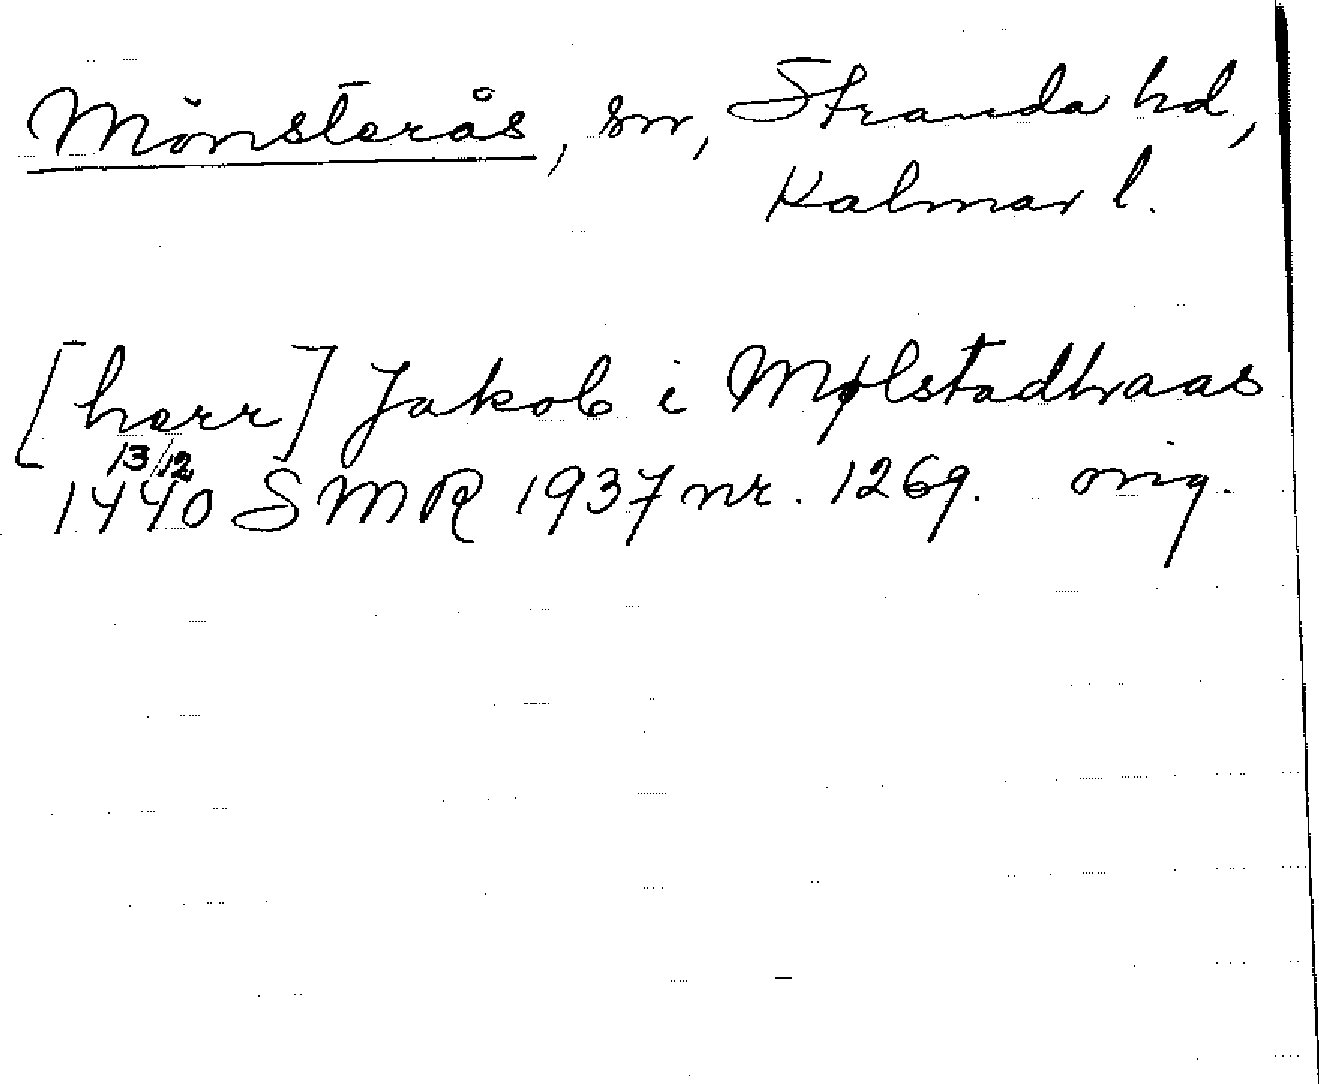 Mönsterås, sn, Stranda hd,
Kalmar l.
[herr] Jakob i Mølstadhraas
13/12
1440 SMR 1937 nr. 1269. orig.